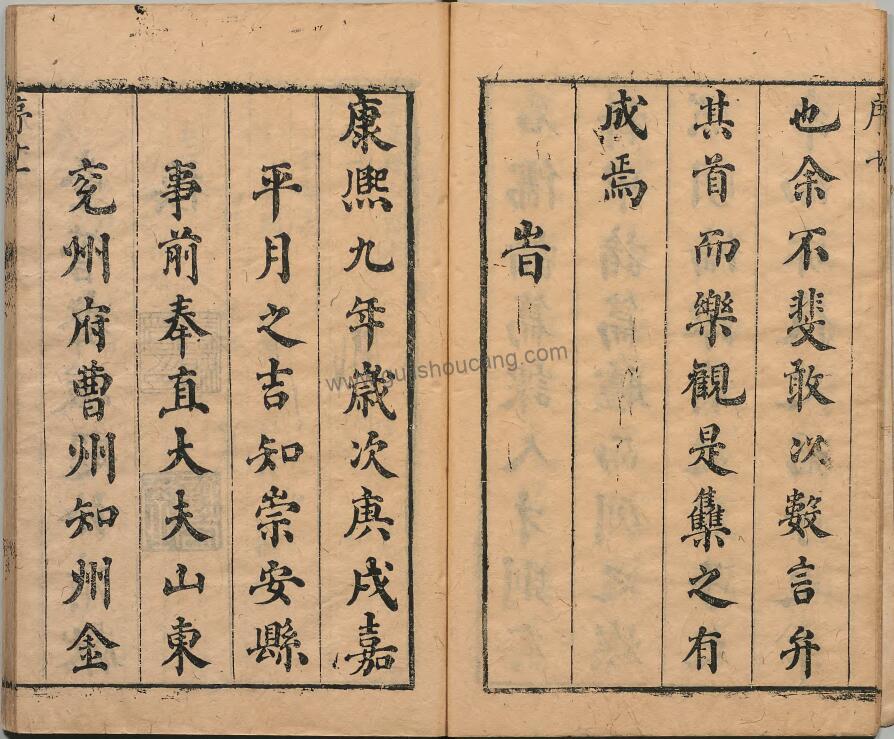 也余不斐敢以數言弁
其首而樂觀是雧之有
成焉
旹
康熈九年歲次庚戌嘉
平月之吉知崇安縣
事前奉直大夫山東
兖州府曹州知州金
www.gujishoucang.com